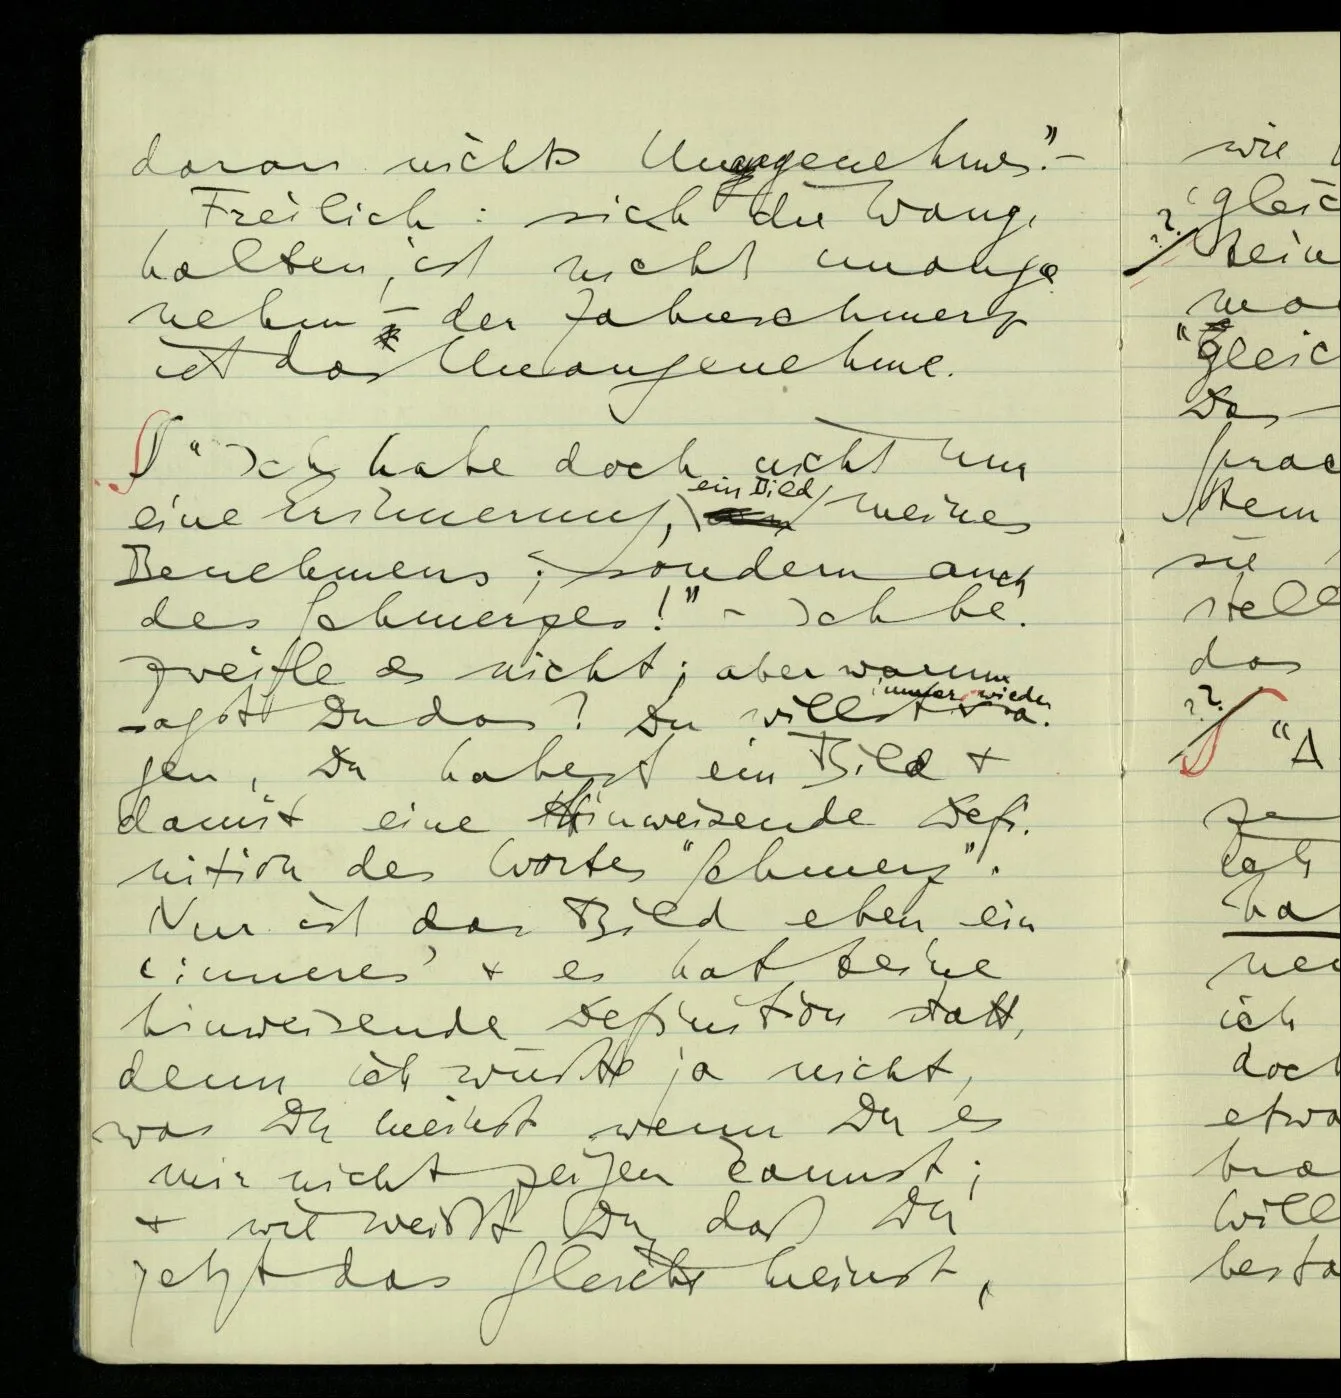 daran nichts Unangenehmes." –
Freilich: sich die Wange
halten, ist nicht unange
nehm – der Zahnschmerz
ist das Unangenehme.
∫ "Ich habe doch nicht nur
eine Erinnerung, ein Bild meines
Benehmens; sondern auch
des Schmerzes!" – Ich be-
zweifle es nicht; aber warum
sagst Du das? Du willst immer wieder sa-
gen, Du habest ein Bild +
damit eine hinweisende Defi-
nition des Wortes "Schmerz".
Nur ist das Bild eben ein
'inneres' + es hat keine
hinweisende Definition statt,
denn ich wüßte ja nicht,
was Du meinst wenn Du es
mir nicht zeigen kannst;
+ wie weißt Du, daß Du
jetzt das gleiche meinst,
wie
'gleic
??
kein
"gleic
Das
sprac
stem
sie
stell
das
?? ∫ "A
ich
doch
etwa
bra
will
besta